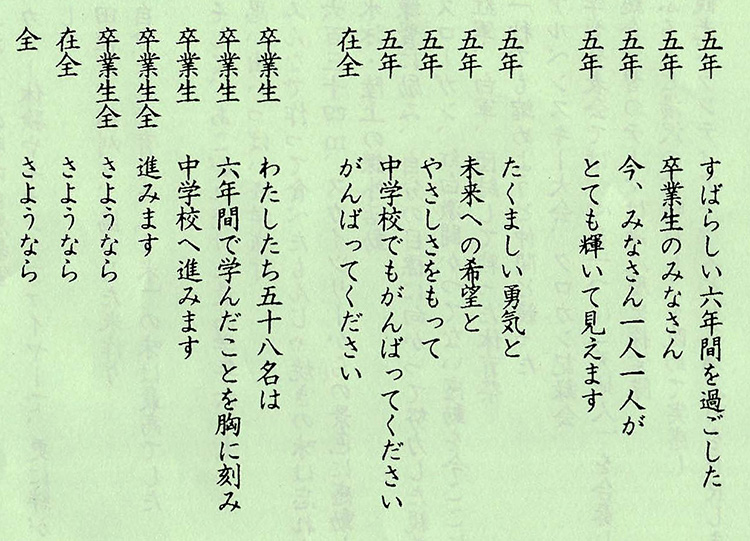 五年　すばらしい六年間を過ごした
五年　卒業生のみなさん
五年　今、みなさん一人一人が
五年　とても輝いて見えます
五年　たくましい勇気と
五年　未来への希望と
五年　やさしさをもって
五年　中学校でもがんばってください
在全　がんばってください
卒業生　わたしたち五十八名は
卒業生　六年間で学んだことを胸に刻み
卒業生　中学校へ進みます
卒業生全　進みます
卒業生全　さようなら
在全　さようなら
全　さようなら